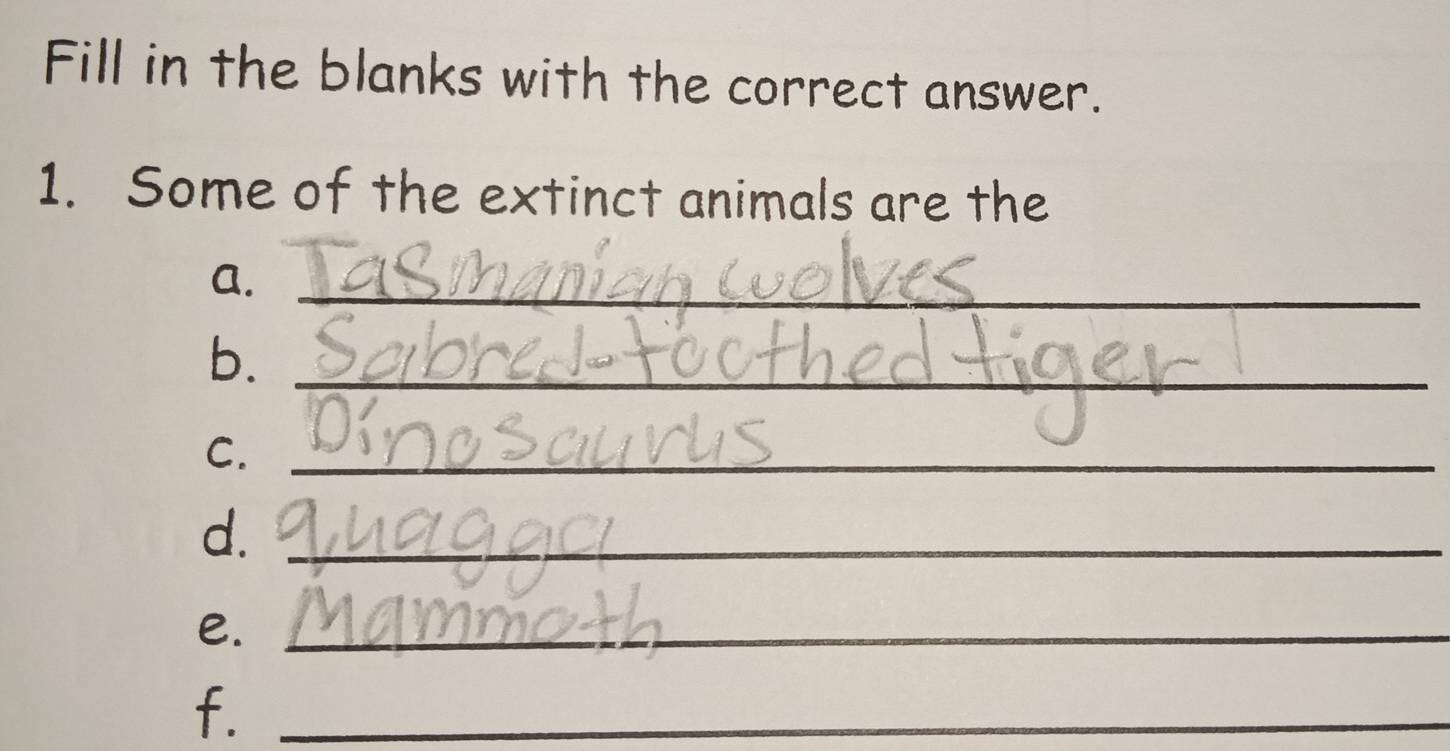 Fill in the blanks with the correct answer.
1. Some of the extinct animals are the
a. Tasmanian wolves
b. Sabred-toothed tiger
c. Dinosaurus
d. quagga
e. Mammoth
f.